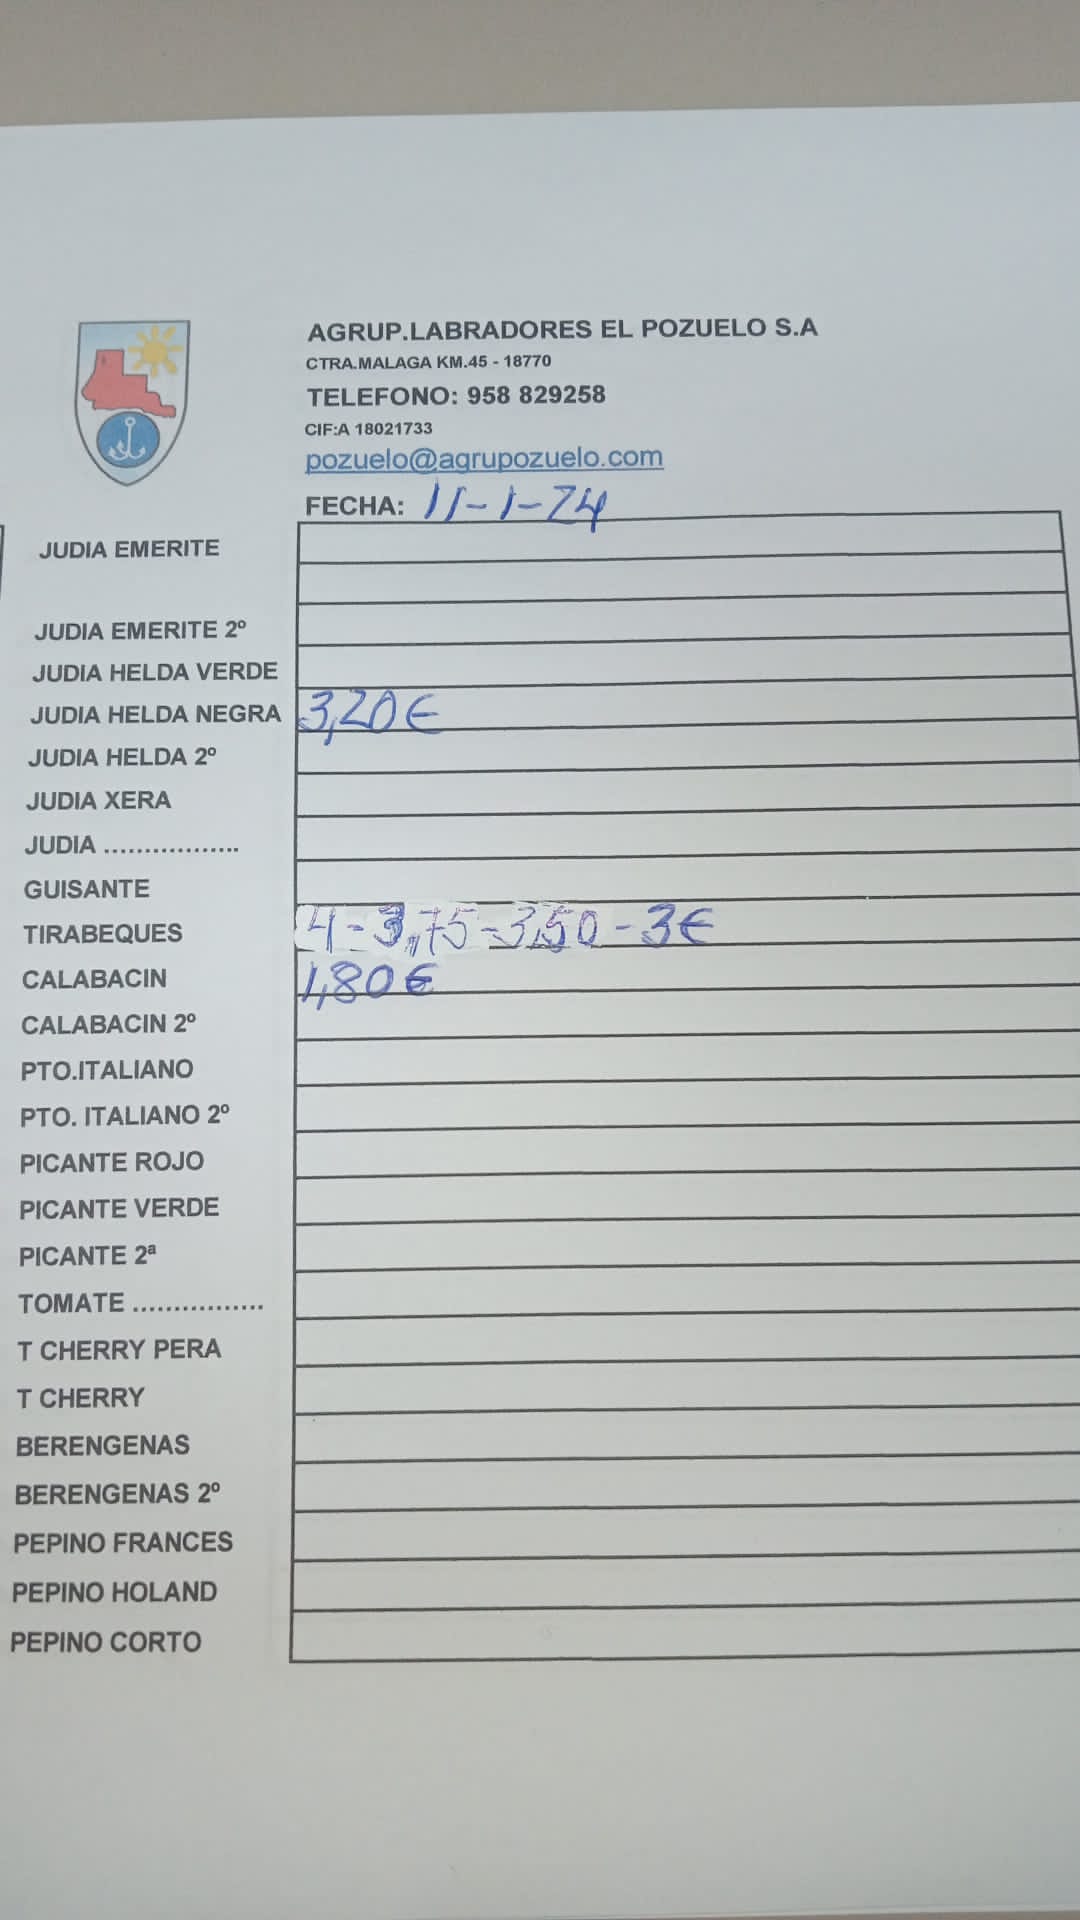 AGRUP.LABRADORES EL POZUELO S.A
CTRA.MALAGA KM.45 - 18770
TELEFONO: 958 829258
CIF:A 18021733
pozuelo@agrupozuelo.com
FECHA: 11-1-24
JUDIA EMERITE
JUDIA EMERITE 2º
JUDIA HELDA VERDE
JUDIA HELDA NEGRA 3,20€
JUDIA HELDA 2º
JUDIA XERA
JUDIA .................
GUISANTE
TIRABEQUES 4-3,75-3,50-3€
CALABACIN 1,80€
CALABACIN 2º
PTO.ITALIANO
PTO. ITALIANO 2º
PICANTE ROJO
PICANTE VERDE
PICANTE 2ª
TOMATE ................
T CHERRY PERA
T CHERRY
BERENGENAS
BERENGENAS 2º
PEPINO FRANCES
PEPINO HOLAND
PEPINO CORTO